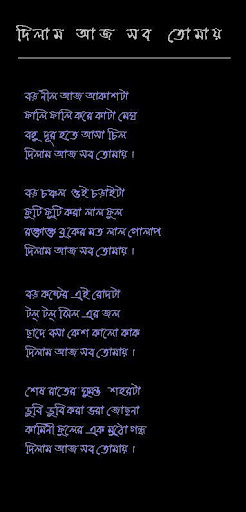 দিলাম আজ সব তোমায়
বড় নীল আজ আকাশটা
ফালি ফালি করে কাটা মেঘ
বহু দূর হতে আসা চিল
দিলাম আজ সব তোমায়।
বড় চঞ্চল ওই চড়াইটা
ফুটি ফুটি করা লাল ফুল
রক্তাক্ত বুকের মত লাল গোলাপ
দিলাম আজ সব তোমায়।
বড় কষ্টের এই রোদটা
টল্ টল্ ঝিল এর জল
ছাদে বসা কেশ কালো কাক
দিলাম আজ সব তোমায়।
শেষ রাতের ঘুমন্ত শহরটা
ডুবি ডুবি করা ভরা জোছনা
কামিনী ফুলের এক মুঠো গন্ধ
দিলাম আজ সব তোমায়।